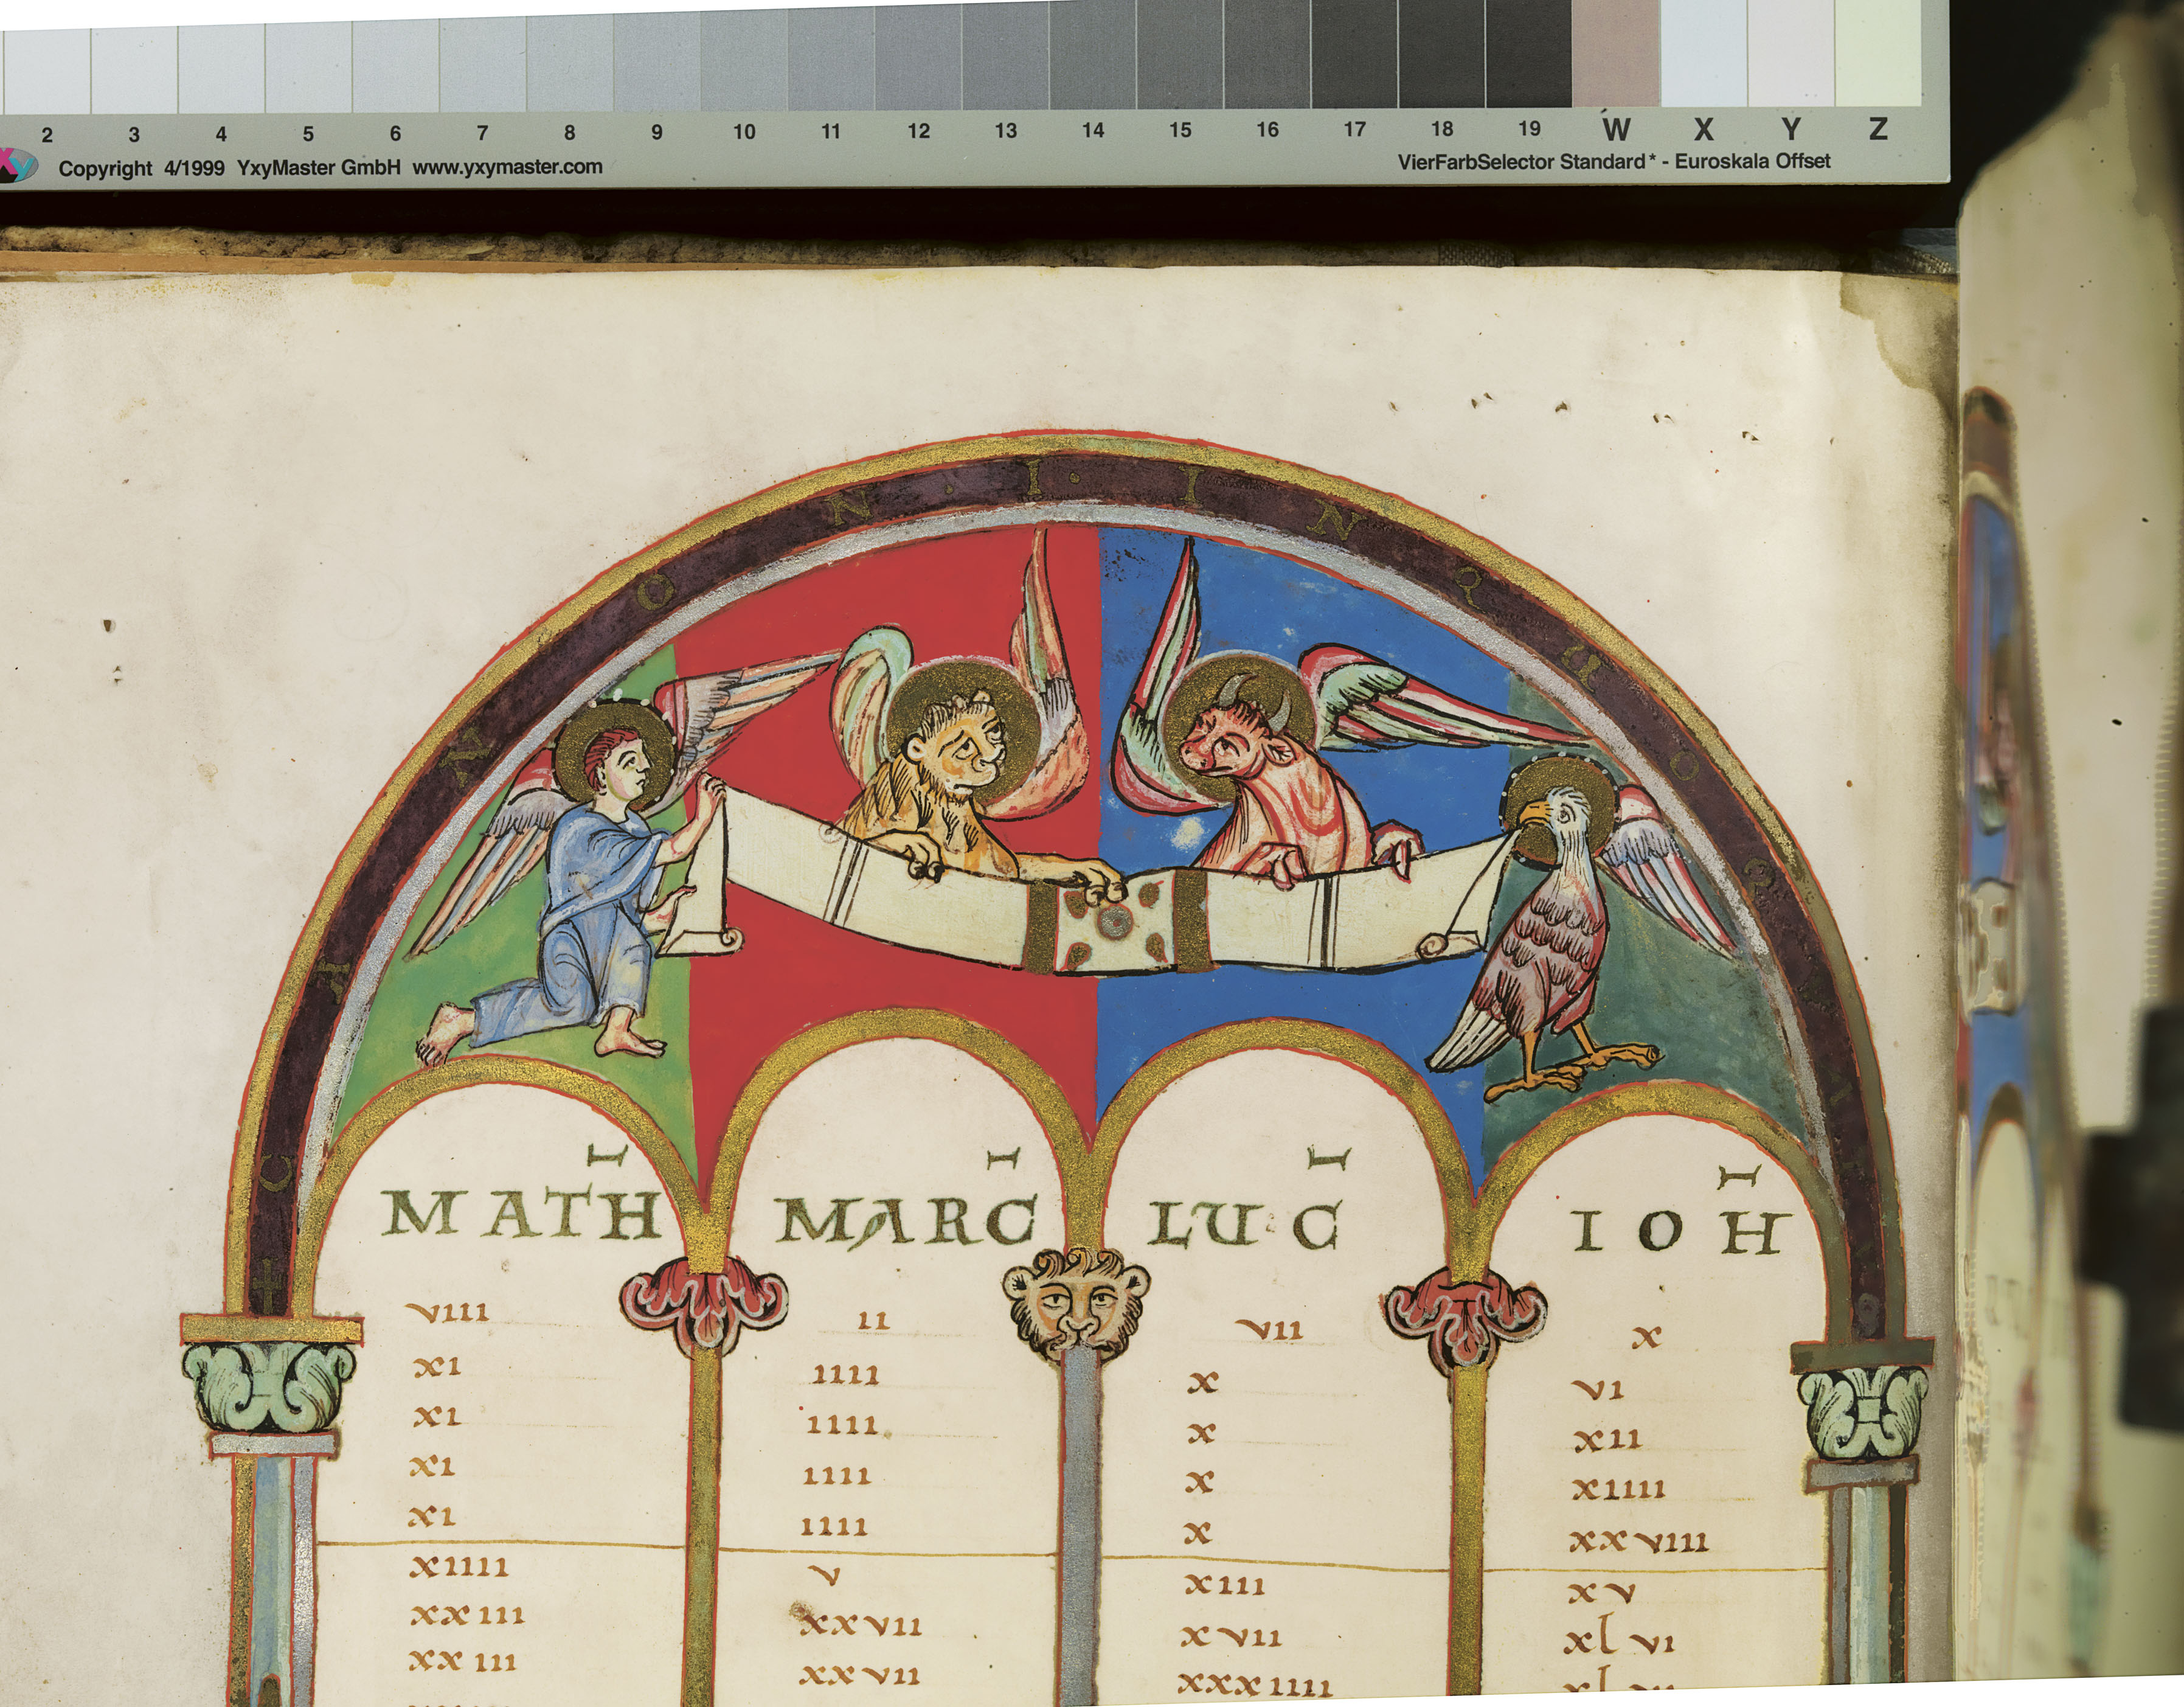 2 3 4 5 6 7 8 9 10 11 12 13 14 15 16 17 18 19 W X Y Z
xy Copyright 4/1999 YxyMaster GmbH www.yxymaster.com VierFarbSelector Standard* - Euroskala Offset
+ C A N O N · I · I N Q
MATH MARC LUC IOH
VIII II VII X
XI IIII X VI
XI IIII X XII
XI IIII X XIIII
XI IIII X XXVIII
XIIII V XIII XV
XXIII XXVII XVII XLVI
XXIII XXVII XXXIIII